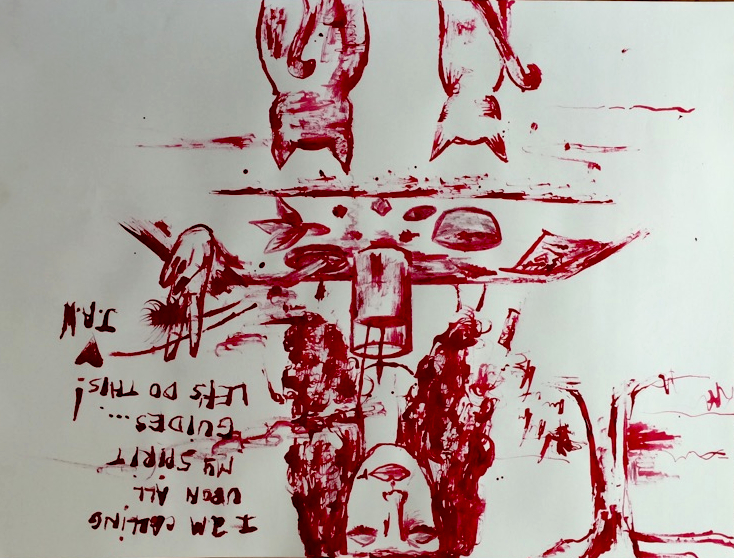 I AM CALLING
UPON ALL
MY SPIRIT
GUIDES...
LET'S DO THIS!
J.A.W